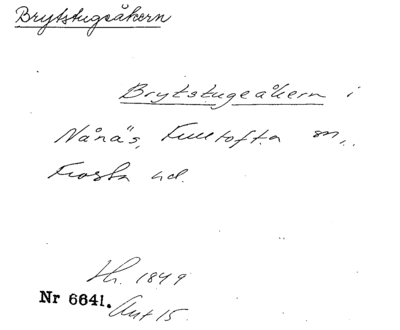 Brytstugeåkern
Brytstugeåkern i
Nånäs, Fulltofta sn.,
Frosta hd.
Hr. 1849
Nr 6641. Ant 15.